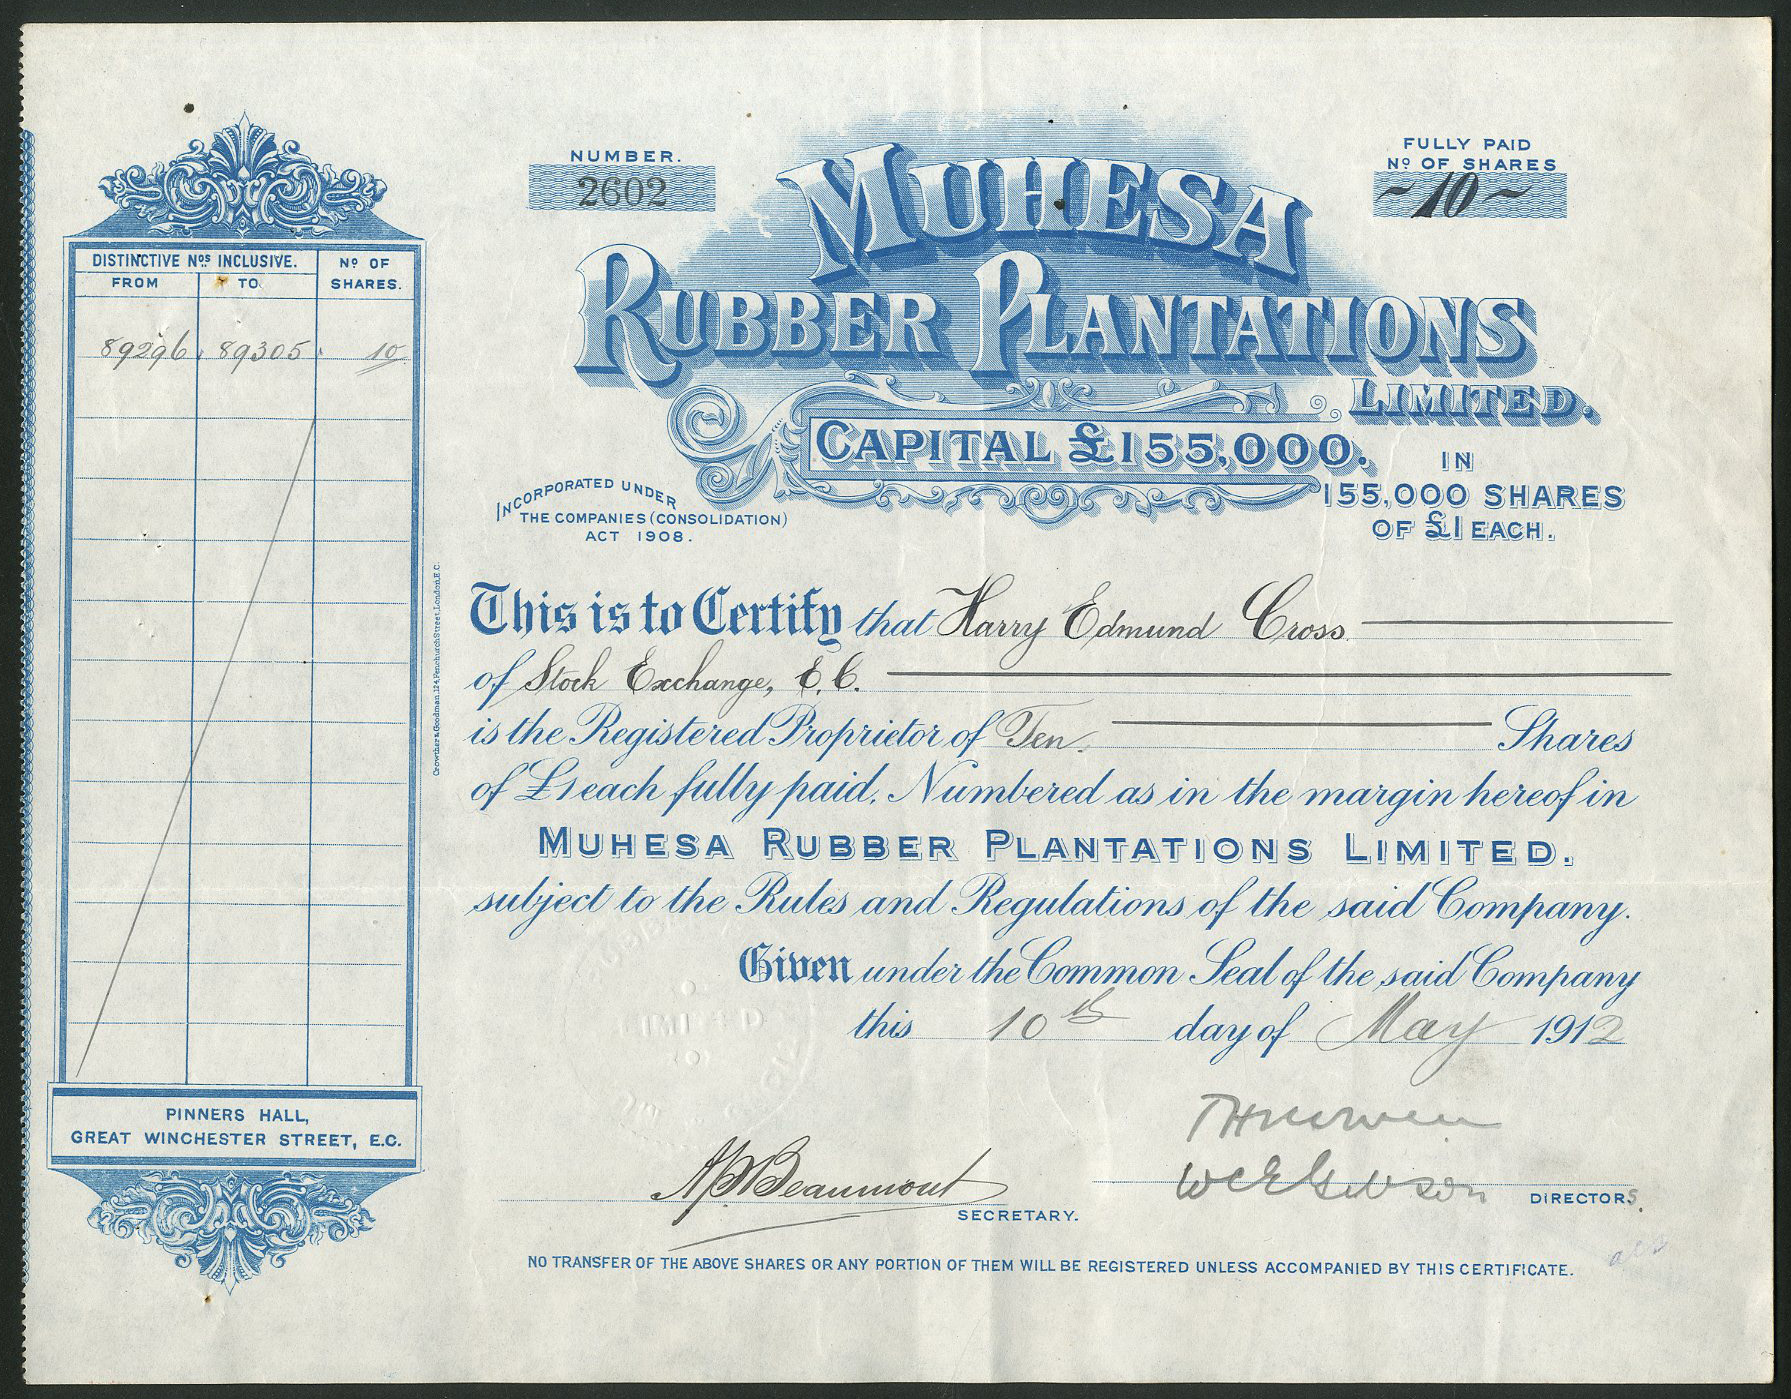 NUMBER.
2602
MUHESA
RUBBER PLANTATIONS
LIMITED.
FULLY PAID
Nº OF SHARES
~10~
CAPITAL £155,000.
IN
155,000 SHARES
OF £1 EACH.
INCORPORATED UNDER
THE COMPANIES (CONSOLIDATION)
ACT 1908.
DISTINCTIVE Nos INCLUSIVE.
Nº OF
SHARES.
FROM
TO
89296 89305 10
This is to Certify that Harry Edmund Cross
of Stock Exchange, E.C.
is the Registered Proprietor of Ten Shares
of £1 each fully paid. Numbered as in the margin hereof in
MUHESA RUBBER PLANTATIONS LIMITED.
subject to the Rules and Regulations of the said Company.
Given under the Common Seal of the said Company
this 10th day of May 1912
LIMITED
PINNERS HALL,
GREAT WINCHESTER STREET, E.C.
Beaumont
SECRETARY.
DIRECTORS.
NO TRANSFER OF THE ABOVE SHARES OR ANY PORTION OF THEM WILL BE REGISTERED UNLESS ACCOMPANIED BY THIS CERTIFICATE.
Crowther & Goodman, 124, Fenchurch Street, London, E.C.